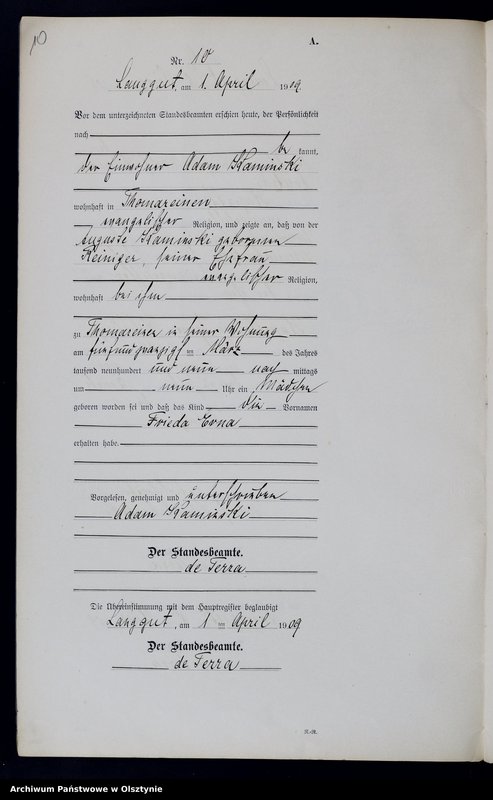 10
A.
Nr. 10
Langgut, am 1. April 1909.
Vor dem unterzeichneten Standesbeamten erschien heute, der Persönlichkeit
nach
be kannt,
der Einwohner Adam Kaminski
wohnhaft in Thomareinen
evangelischer Religion, und zeigte an, daß von der
Auguste Kaminski geborenen
Reiniger, seiner Ehefrau
evangelischer Religion,
wohnhaft bei ihm
zu Thomareinen in seiner Wohnung
am fünfundzwanzigsten März des Jahres
tausend neunhundert und neun nach mittags
um neun Uhr ein Mädchen
geboren worden sei und daß das Kind die Vornamen
Frieda Erna
erhalten habe.
Vorgelesen, genehmigt und unterschrieben
Adam Kaminski
Der Standesbeamte.
de Terra
Die Übereinstimmung mit dem Hauptregister beglaubigt
Langgut, am 1 ten April 1909
Der Standesbeamte.
de Terra
Archiwum Państwowe w Olsztynie